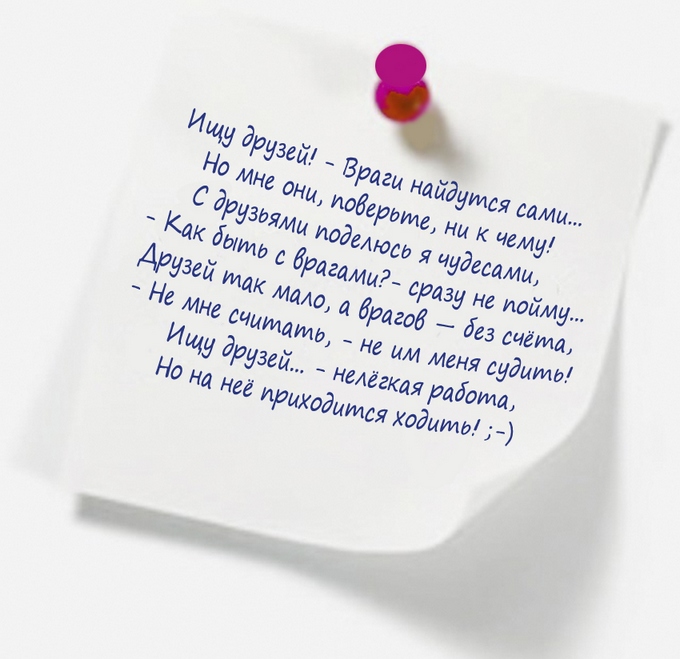 Ищу друзей! - Враги найдутся сами...
Но мне они, поверьте, ни к чему!
С друзьями поделюсь я чудесами,
- Как быть с врагами?- сразу не пойму...
Друзей так мало, а врагов — без счёта,
- Не мне считать, - не им меня судить!
Ищу друзей... - нелёгкая работа,
Но на неё приходится ходить! ;-)